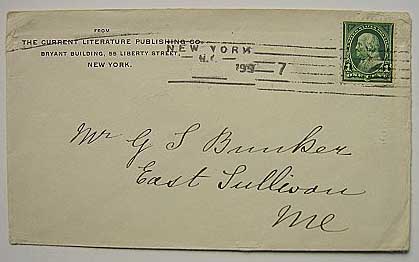 FROM
THE CURRENT LITERATURE PUBLISHING CO.
BRYANT BUILDING, 55 LIBERTY STREET,
NEW YORK.
NEW YORK
N.Y.
7
Mr G S Bunker
East Sullivan
Me